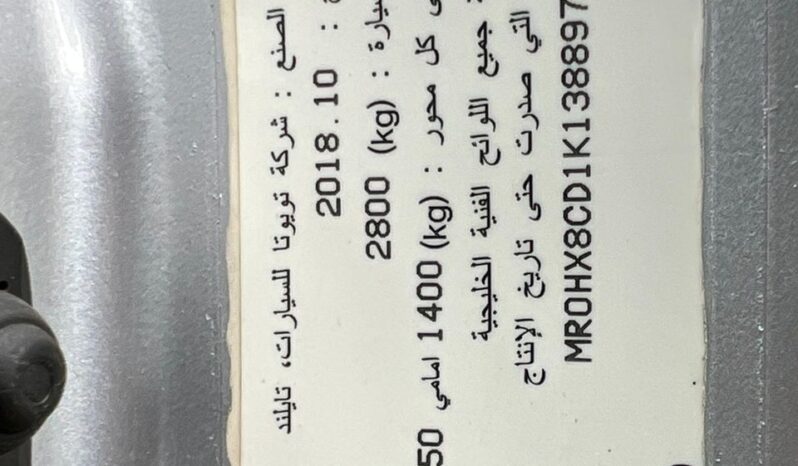 الصنع : شركة تويوتا للسيارات، تايلند
: 2018.10
: 2800 (kg)
كل محور : 1400 (kg) امامي 50
جميع اللوائح الفنية الخليجية
التي صدرت حتى تاريخ الإنتاج
MR0HX8CD1K138897